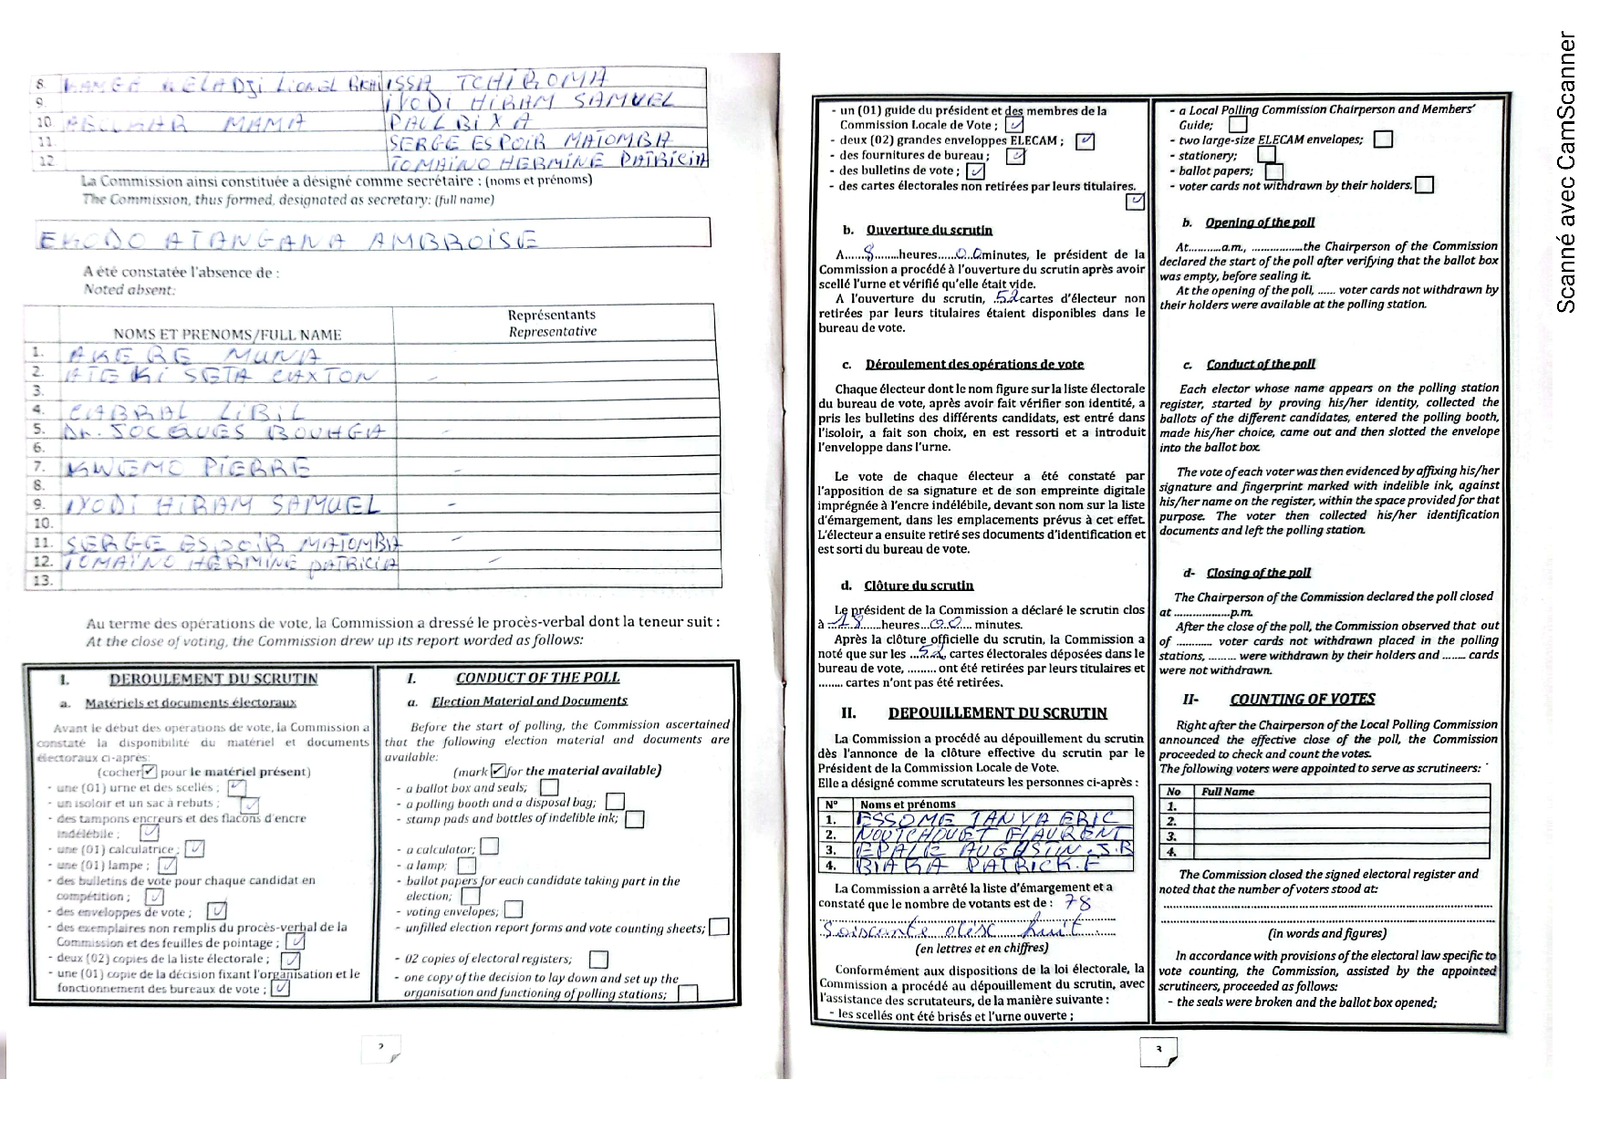 8. KAMGA KELADJI LIONEL ISSA TCHIROMA
9. IYODI HIRAM SAMUEL
10 ABOUKAR MAMA PAUL BIYA
11 SERGE ESPOIR MATOMBA
12. TOMAÏNO HERMINE PATRICIA
La Commission ainsi constituée a désigné comme secrétaire : (noms et prénoms)
The Commission, thus formed, designated as secretary: (full name)
EKODO ATANGANA AMBROISE
A été constatée l'absence de :
Noted absent:
NOMS ET PRENOMS/FULL NAME
Représentants
Representative
1. AKERE MUNA
2. ATEKI SETA CAXTON -
3.
4. CABRAL LIBIL
5. Dr. JOCQUES BOUHGIA -
6.
7. KWEMO PIERRE -
8.
9. IYODI HIRAM SAMUEL -
10.
11. SERGE ESPOIR MATOMBA -
12. TOMAÏNO HERMINE PATRICIA -
13.
Au terme des opérations de vote, la Commission a dressé le procès-verbal dont la teneur suit :
At the close of voting, the Commission drew up its report worded as follows:
I. DEROULEMENT DU SCRUTIN
a. Matériels et documents électoraux
Avant le début des opérations de vote, la Commission a
constaté la disponibilité du matériel et documents
électoraux ci-après:
(cocher ✓ pour le matériel présent)
- une (01) urne et des scellés ; ✓
- un isoloir et un sac à rebuts ; ✓
- des tampons encreurs et des flacons d'encre
indélébile ; ✓
- une (01) calculatrice ; ✓
- une (01) lampe ; ✓
- des bulletins de vote pour chaque candidat en
compétition ; ✓
- des enveloppes de vote ; ✓
- des exemplaires non remplis du procès-verbal de la
Commission et des feuilles de pointage ; ✓
- deux (02) copies de la liste électorale ; ✓
- une (01) copie de la décision fixant l'organisation et le
fonctionnement des bureaux de vote ; ✓
I. CONDUCT OF THE POLL
a. Election Material and Documents
Before the start of polling, the Commission ascertained
that the following election material and documents are
available:
(mark ✓ for the material available)
- a ballot box and seals;
- a polling booth and a disposal bag;
- stamp pads and bottles of indelible ink;
- a calculator;
- a lamp;
- ballot papers for each candidate taking part in the
election;
- voting envelopes;
- unfilled election report forms and vote counting sheets;
- 02 copies of electoral registers;
- one copy of the decision to lay down and set up the
organisation and functioning of polling stations;
2
- un (01) guide du président et des membres de la
Commission Locale de Vote ; ✓
- deux (02) grandes enveloppes ELECAM ; ✓
- des fournitures de bureau ; ✓
- des bulletins de vote ; ✓
- des cartes électorales non retirées par leurs titulaires.
✓
b. Ouverture du scrutin
A......8.......heures......00minutes, le président de la
Commission a procédé à l'ouverture du scrutin après avoir
scellé l'urne et vérifié qu'elle était vide.
A l'ouverture du scrutin, 52 cartes d'électeur non
retirées par leurs titulaires étaient disponibles dans le
bureau de vote.
c. Déroulement des opérations de vote
Chaque électeur dont le nom figure sur la liste électorale
du bureau de vote, après avoir fait vérifier son identité, a
pris les bulletins des différents candidats, est entré dans
l'isoloir, a fait son choix, en est ressorti et a introduit
l'enveloppe dans l'urne.
Le vote de chaque électeur a été constaté par
l'apposition de sa signature et de son empreinte digitale
imprégnée à l'encre indélébile, devant son nom sur la liste
d'émargement, dans les emplacements prévus à cet effet.
L'électeur a ensuite retiré ses documents d'identification et
est sorti du bureau de vote.
d. Clôture du scrutin
Le président de la Commission a déclaré le scrutin clos
à ...18......heures...00.... minutes.
Après la clôture officielle du scrutin, la Commission a
noté que sur les ...52.. cartes électorales déposées dans le
bureau de vote, ......... ont été retirées par leurs titulaires et
........ cartes n'ont pas été retirées.
II. DEPOUILLEMENT DU SCRUTIN
La Commission a procédé au dépouillement du scrutin
dès l'annonce de la clôture effective du scrutin par le
Président de la Commission Locale de Vote.
Elle a désigné comme scrutateurs les personnes ci-après :
N° Noms et prénoms
1. ESSOME TANYA ERIC
2. NOUTCHOUET FLAURENT
3. EPALE AUGUSIN.J.R
4. BIAKA PATRICK.F
La Commission a arrêté la liste d'émargement et a
constaté que le nombre de votants est de : 78
Soiscante disc huit
(en lettres et en chiffres)
Conformément aux dispositions de la loi électorale, la
Commission a procédé au dépouillement du scrutin, avec
l'assistance des scrutateurs, de la manière suivante :
- les scellés ont été brisés et l'urne ouverte ;
- a Local Polling Commission Chairperson and Members'
Guide;
- two large-size ELECAM envelopes;
- stationery;
- ballot papers;
- voter cards not withdrawn by their holders.
b. Opening of the poll
At..........a.m., ..................the Chairperson of the Commission
declared the start of the poll after verifying that the ballot box
was empty, before sealing it.
At the opening of the poll, ...... voter cards not withdrawn by
their holders were available at the polling station.
c. Conduct of the poll
Each elector whose name appears on the polling station
register, started by proving his/her identity, collected the
ballots of the different candidates, entered the polling booth,
made his/her choice, came out and then slotted the envelope
into the ballot box.
The vote of each voter was then evidenced by affixing his/her
signature and fingerprint marked with indelible ink, against
his/her name on the register, within the space provided for that
purpose. The voter then collected his/her identification
documents and left the polling station.
d- Closing of the poll
The Chairperson of the Commission declared the poll closed
at ....................p.m.
After the close of the poll, the Commission observed that out
of ............ voter cards not withdrawn placed in the polling
stations, ......... were withdrawn by their holders and ........ cards
were not withdrawn.
II- COUNTING OF VOTES
Right after the Chairperson of the Local Polling Commission
announced the effective close of the poll, the Commission
proceeded to check and count the votes.
The following voters were appointed to serve as scrutineers:
No Full Name
1.
2.
3.
4.
The Commission closed the signed electoral register and
noted that the number of voters stood at:
(in words and figures)
In accordance with provisions of the electoral law specific to
vote counting, the Commission, assisted by the appointed
scrutineers, proceeded as follows:
- the seals were broken and the ballot box opened;
3
Scanné avec CamScanner